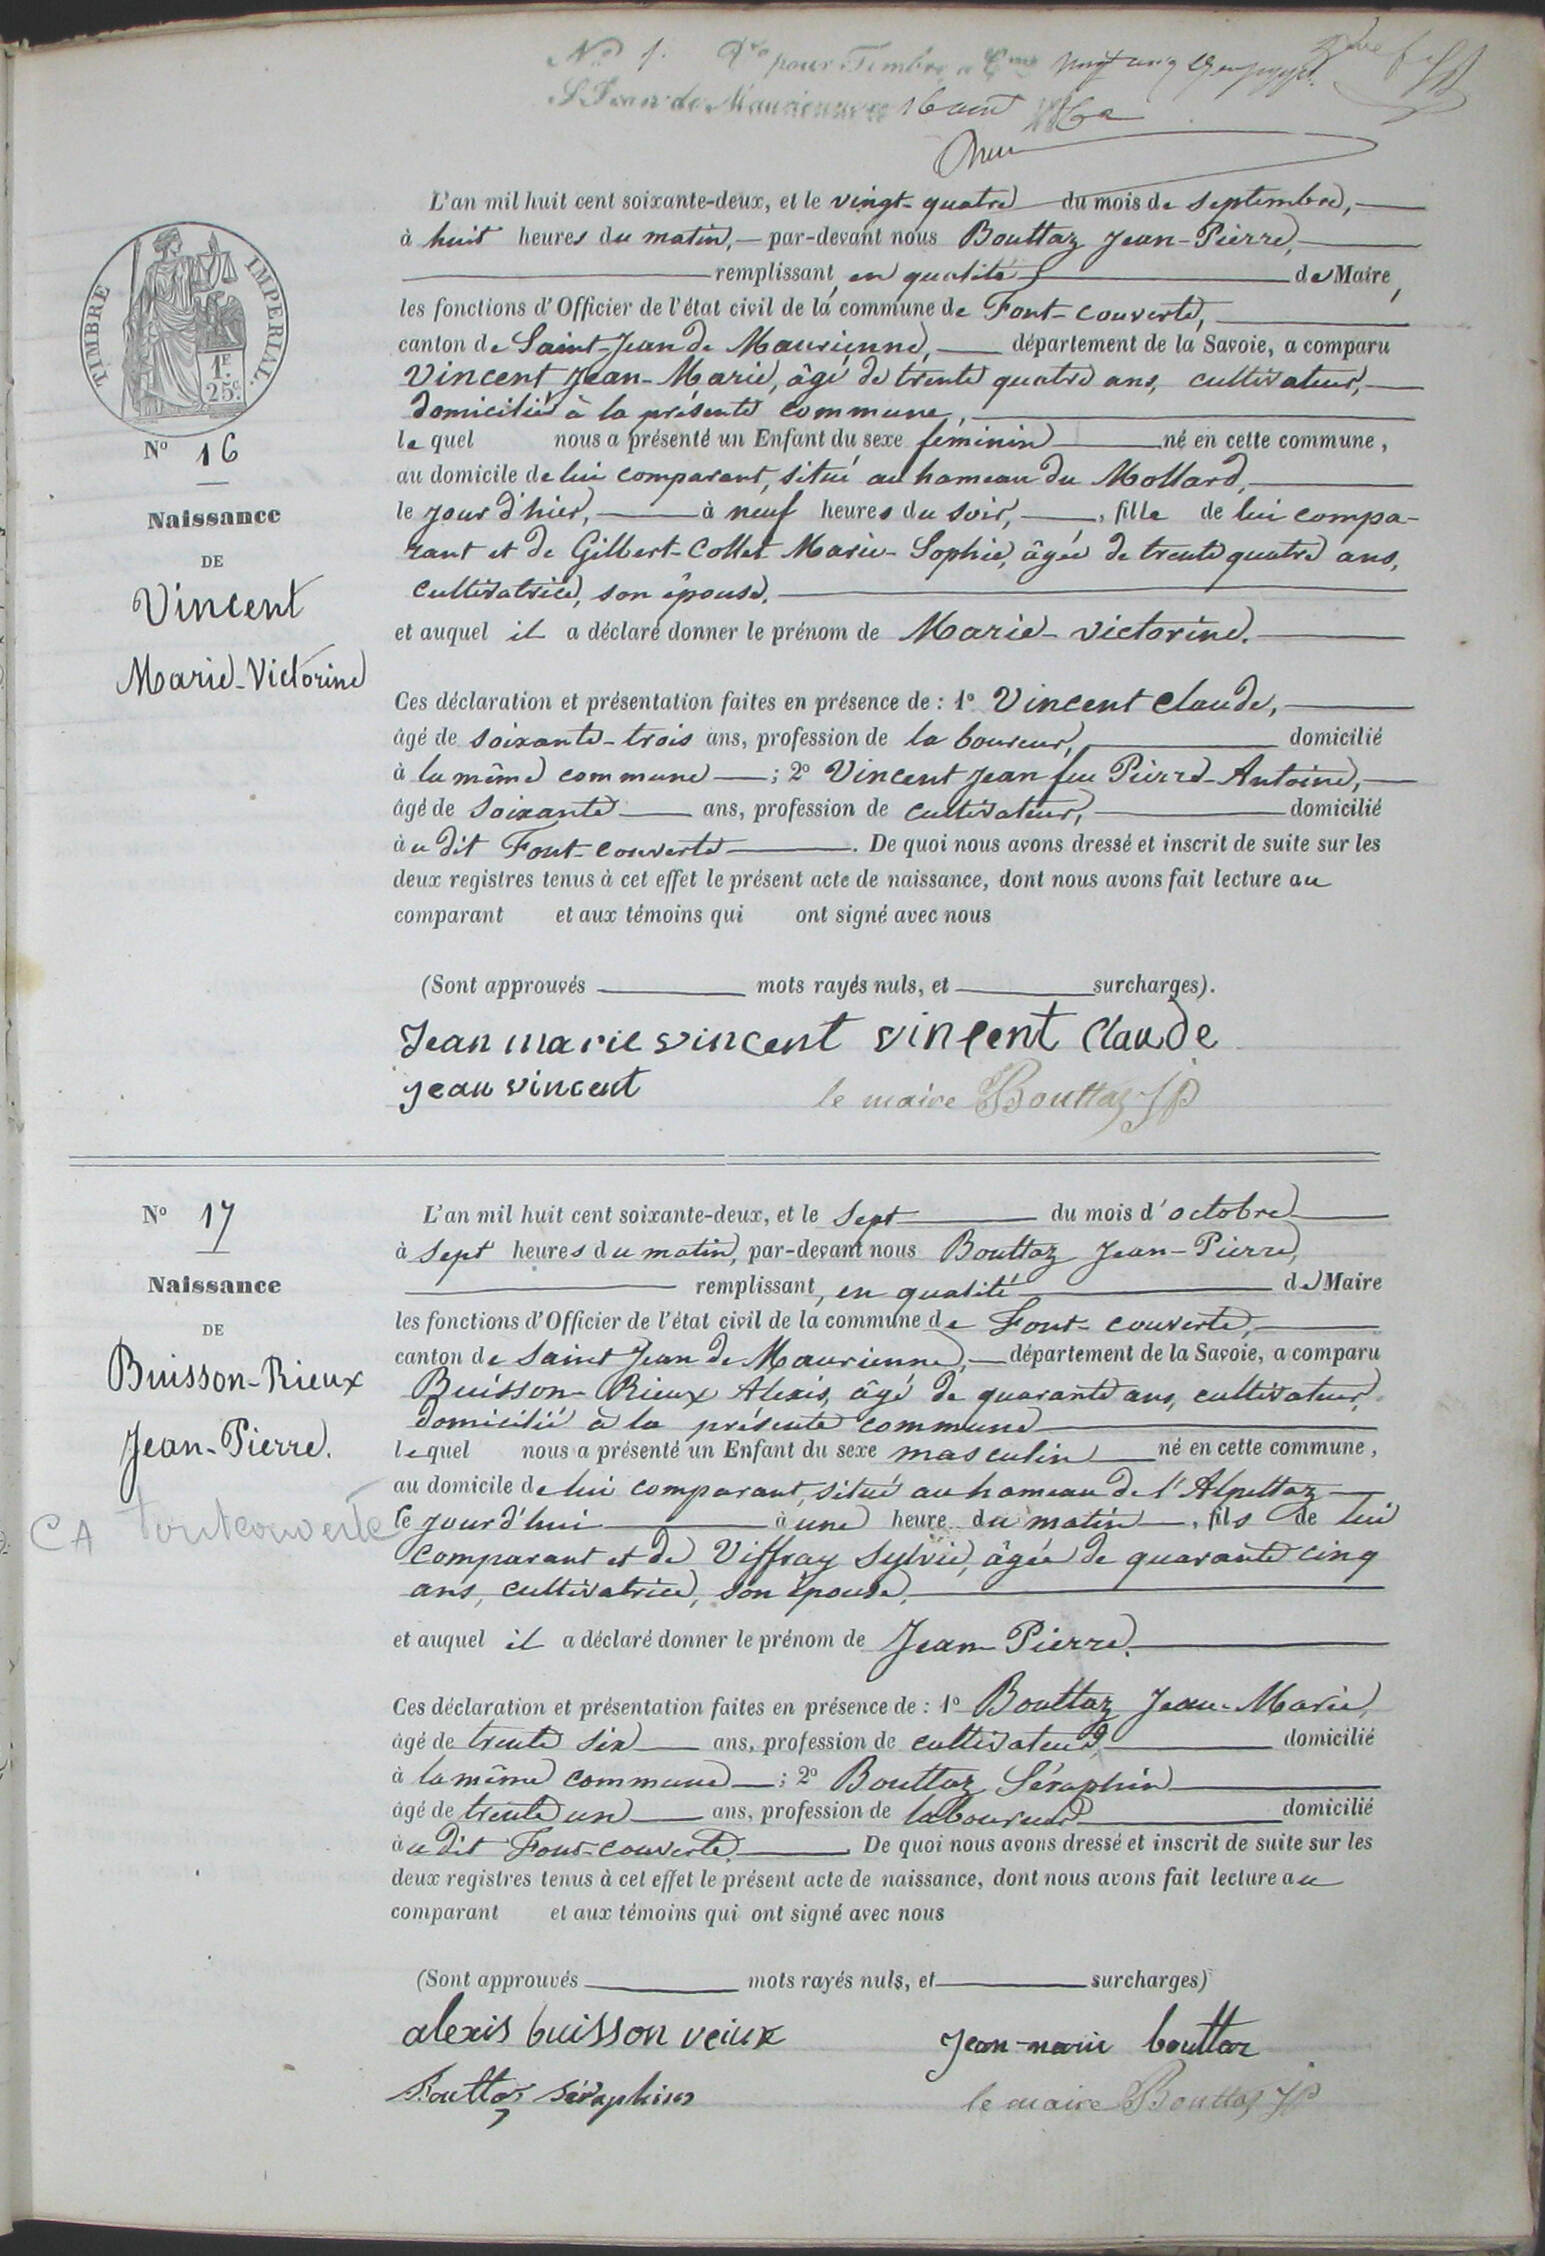 No 1. pour Timbre
S. Jean de Maurienne 16
L'an mil huit cent soixante-deux, et le vingt-quatre du mois de septembre,
à huit heures du matin, par-devant nous Bouttaz Jean-Pierre,
remplissant, en qualité de Maire,
les fonctions d'Officier de l'état civil de la commune de Font-couverte,
canton de Saint-Jean de Maurienne, département de la Savoie, a comparu
Vincent Jean-Marie, âgé de trente quatre ans, cultivateur,
domicilié à la présente commune,
lequel nous a présenté un Enfant du sexe féminin né en cette commune,
au domicile de lui comparant, situé au hameau du Mollard,
le jour d'hier, à neuf heures du soir, fille de lui compa-
rant et de Gilbert-Collet Marie-Sophie, âgée de trente quatre ans,
cultivatrice, son épouse.
et auquel il a déclaré donner le prénom de Marie-victorine.
Ces déclaration et présentation faites en présence de : 1o Vincent Claude,
âgé de soixante-trois ans, profession de laboureur, domicilié
à la même commune ; 2o Vincent Jean feu Pierre-Antoine,
âgé de soixante ans, profession de cultivateur, domicilié
à u dit Font-couverte. De quoi nous avons dressé et inscrit de suite sur les
deux registres tenus à cet effet le présent acte de naissance, dont nous avons fait lecture au
comparant et aux témoins qui ont signé avec nous
(Sont approuvés mots rayés nuls, et surcharges).
Jean marie vincent vincent Claude
jean vincent le maire Bouttaz JP
TIMBRE IMPERIAL.
1F
25c
No 16
Naissance
DE
Vincent
Marie-Victorine
No 17
Naissance
DE
Buisson-Rieux
Jean-Pierre.
CA Fontcouverte
L'an mil huit cent soixante-deux, et le sept du mois d'octobre
à sept heures du matin, par-devant nous Bouttaz Jean-Pierre,
remplissant, en qualité de Maire
les fonctions d'Officier de l'état civil de la commune de Font-couverte,
canton de Saint Jean de Maurienne, département de la Savoie, a comparu
Buisson-Rieux Alexis, âgé de quarante ans, cultivateur,
domicilié à la présente commune
lequel nous a présenté un Enfant du sexe masculin né en cette commune,
au domicile de lui comparant, situé au hameau de l'Alpettaz
le jourd'hui à une heure du matin, fils de lui
comparant et de Viffray Sylvie, âgée de quarante cinq
ans, cultivatrice, son épouse,
et auquel il a déclaré donner le prénom de Jean Pierre.
Ces déclaration et présentation faites en présence de : 1o Bouttaz Jean-Marie,
âgé de trente six ans, profession de cultivateur, domicilié
à la même commune ; 2o Bouttaz Séraphin
âgé de trente un ans, profession de laboureur domicilié
à u dit Font-couverte. De quoi nous avons dressé et inscrit de suite sur les
deux registres tenus à cet effet le présent acte de naissance, dont nous avons fait lecture au
comparant et aux témoins qui ont signé avec nous
(Sont approuvés mots rayés nuls, et surcharges)
alexis buisson reiux Jean-marie bouttaz
Bouttaz séraphin le maire Bouttaz JP